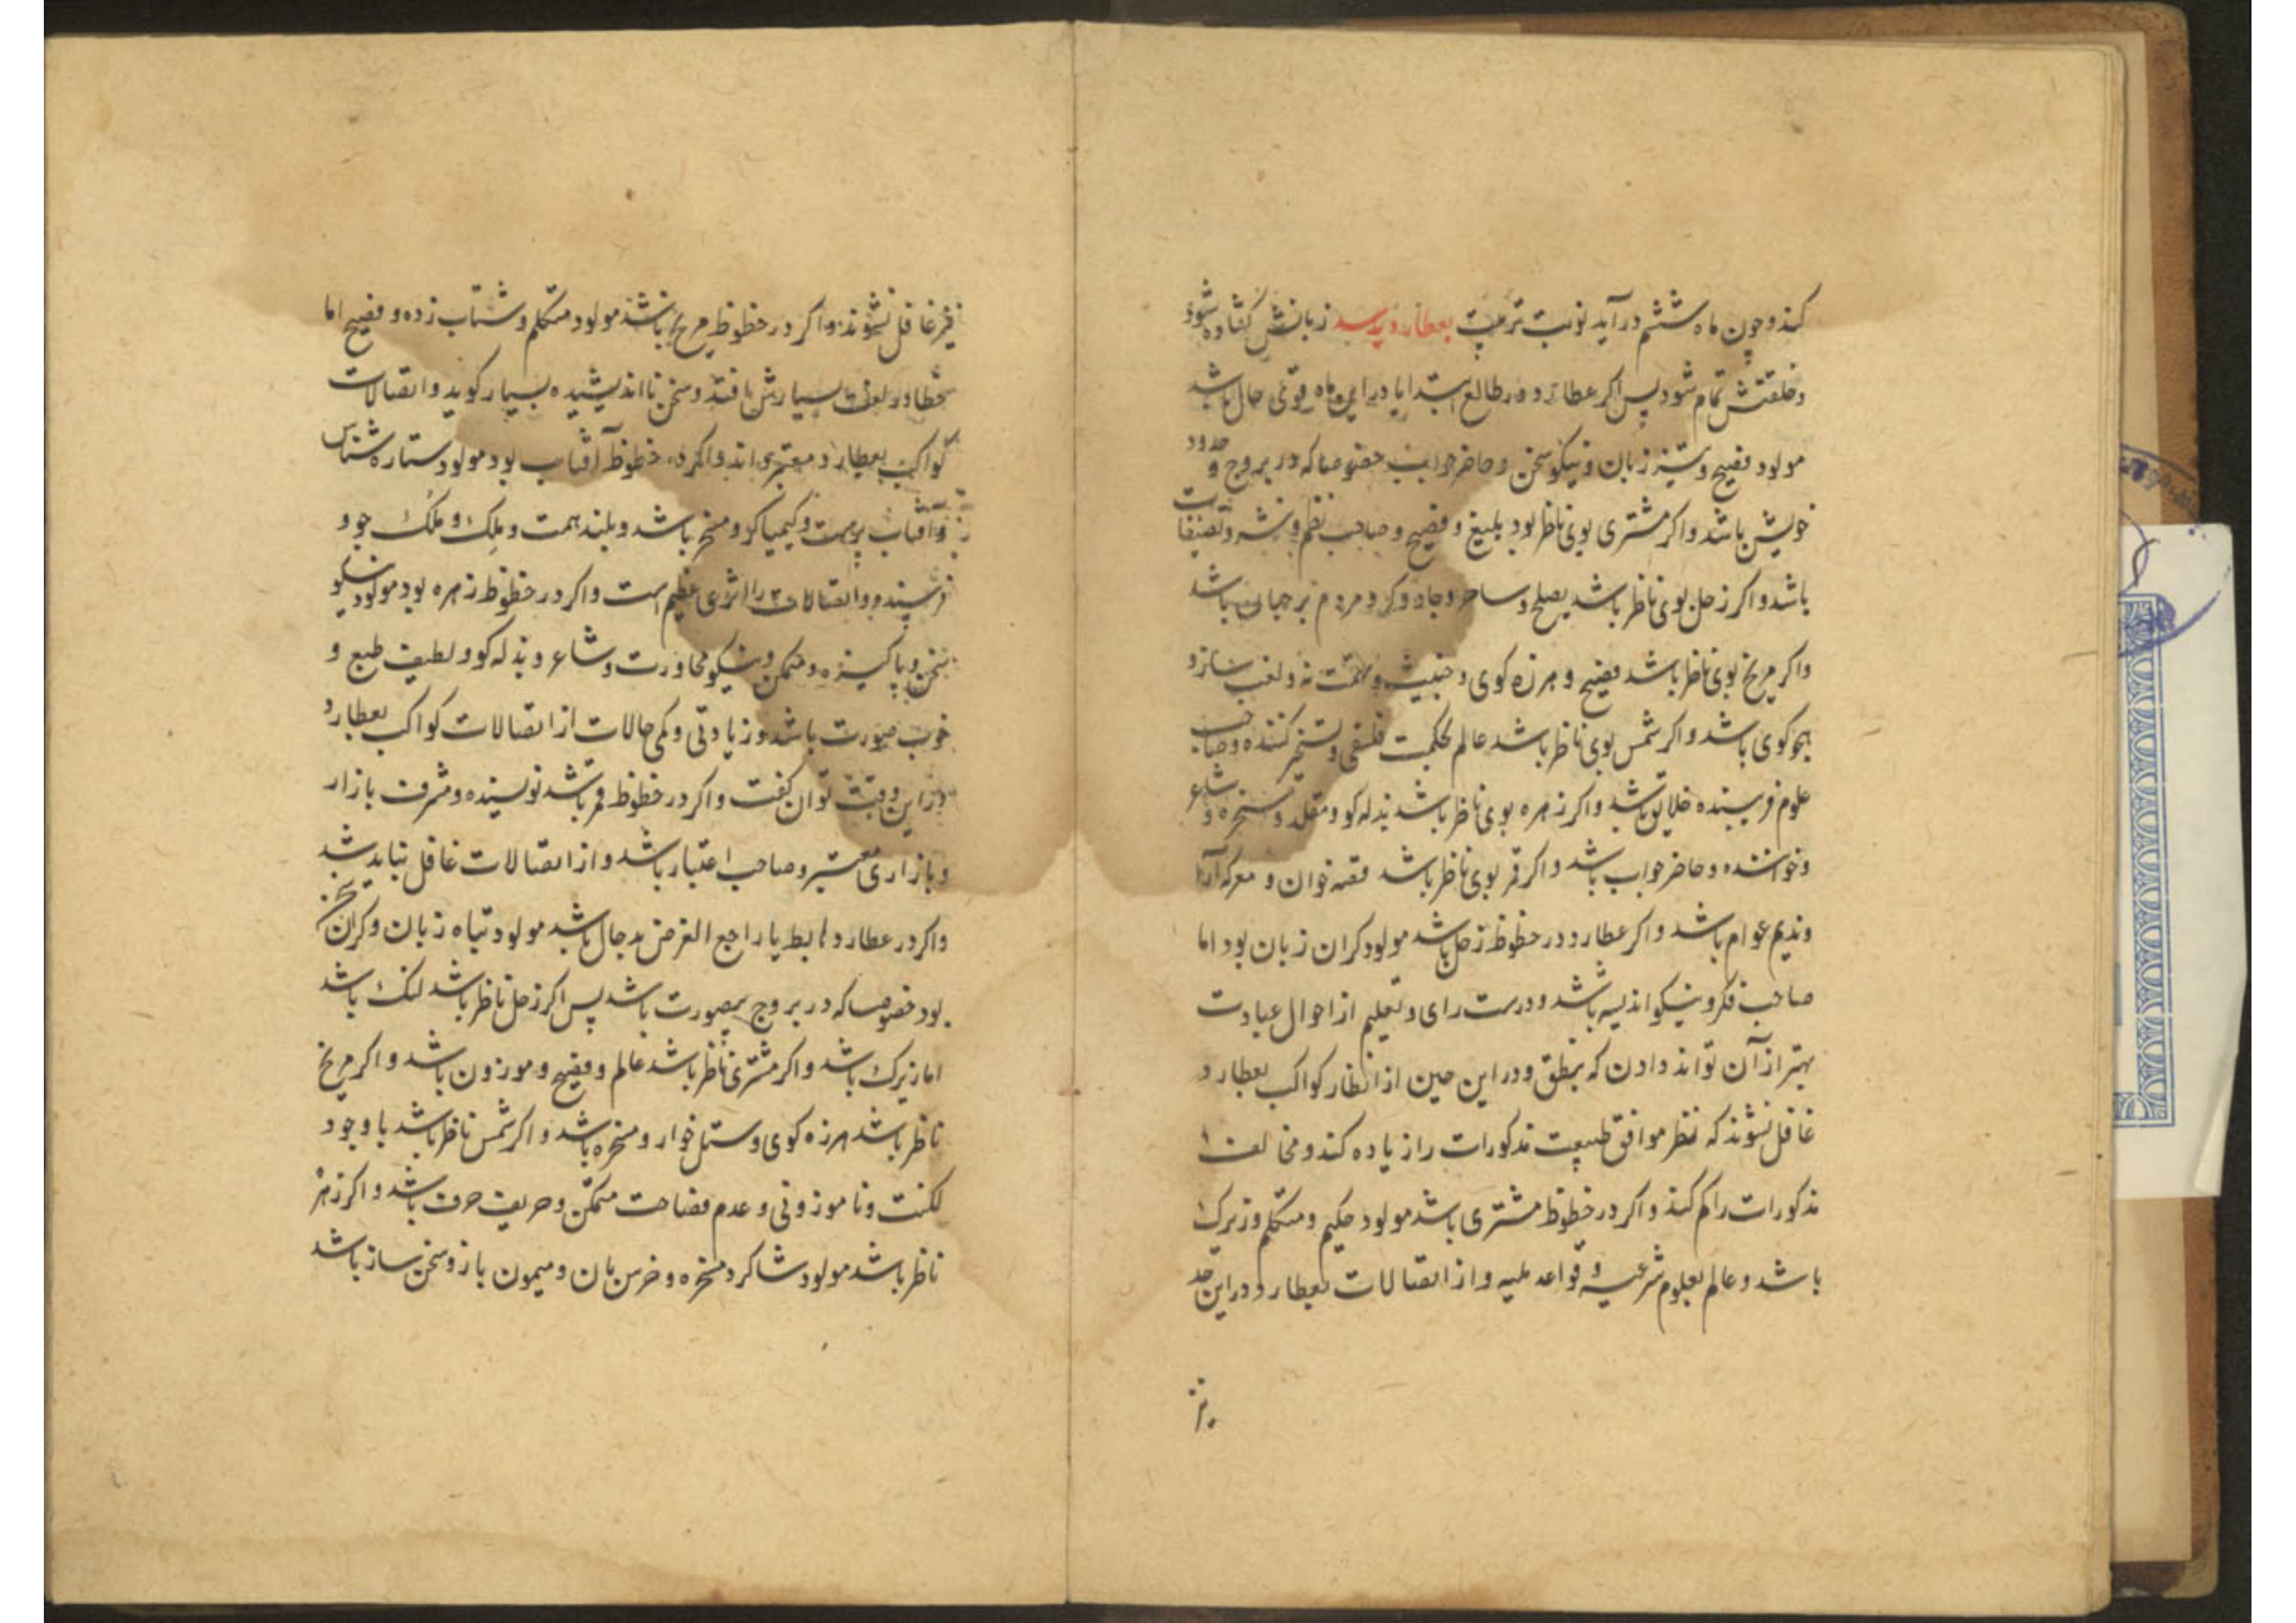 کند و چون ماه ششم در آید نوبت تربیت بعطارد رسد زبانش کشاده شود
و خلقتش تمام شود پس اکر عطارد در طالع ابتدا یا در این ماه قوی حال باشد
مولود فصیح و تیز زبان و نیکو سخن و حاضر جواب خصوصا که در بروج و حدود
خویش باشد و اکر مشتری بوی ناظر بود بلیغ و فصیح و صاحب نظم و نثر و تصنیفات
باشد و اکر زحل بوی ناظر باشد و ساحر و جادوکر و مردم باشد
و اکر مریخ بوی ناظر باشد فصیح و هرزه کوی و خبیث و
هجو کوی باشد و اکر شمس بوی ناظر باشد عالم بحکمت فلسفی و تسخیر کننده و صاحب
علوم فریبنده خلایق باشد و اکر زهره بوی ناظر باشد بذله کو و مقلد و مسخره و شاعر
و خواننده و حاضر جواب باشد و اکر قمر بوی ناظر باشد قصه خوان و معرکه آرا
و ندیم عوام باشد و اکر عطارد در حظوظ زحل باشد مولود کران زبان بود اما
صاحب فکر و نیکو اندیشه باشد و درست رای و تعلیم از احوال عبادت
بهتر از آن تواند دادن که بنطق و در این حین از انظار کواکب بعطارد
غافل نشوند که نظر موافق طبیعت مذکورات را زیاده کند و مخالفت
مذکورات را کم کند و اکر در حظوظ مشتری باشد مولود حکیم و متکلم و زیرک
باشد و عالم بعلوم شرعیه و قواعد ملیه و از اتصالات بعطارد در این حد
نیز
نیز غافل نشوند و اکر در حظوظ مریخ باشد مولود متکلم و شتاب زده و فصیح اما
خطا در لغت بسیارش افتد و سخن نااندیشیده بسیار کوید و اتصالات
کواکب بعطارد معتبر اند و اکر در حظوظ آفتاب بود مولود ستاره شناس
و آفتاب پرست و کیمیا کر و مسخر باشد و بلند همت و ملک و ملک جو و
فریبنده و اتصالات را اثری عظیم است و اکر در حظوظ زهره بود مولود نیکو
سخن و پاکیزه و متمکن و نیکو محاورت و شاعر و بذله کو و لطیف طبع و
خوب صورت باشد و زیادتی و کمی حالات از اتصالات کواکب بعطارد
در این وقت توان کفت و اکر در حظوظ قمر باشد نویسنده و مشرف بازار
و بازاری معتبر و صاحب اعتبار باشد و از اتصالات غافل نباید شد
و اکر در عطارد هابط یا راجع الغرض بد حال باشد مولود تباه زبان و کران سخن
بود خصوصا که در بروج بیصورت باشد پس اکر زحل ناظر باشد لنک باشد
اما زیرک باشد و اکر مشتری ناظر باشد عالم و فصیح و موزون باشد و اکر مریخ
ناظر باشد هرزه کوی و ستل خوار و مسخره باشد و اکر شمس ناظر باشد با وجود
لکنت و نا موزونی و عدم فصاحت متمکن و حریف حرف باشد و اکر زهره
ناظر باشد مولود شاکرد مسخره و خرس بان و میمون باز و سخن ساز باشد